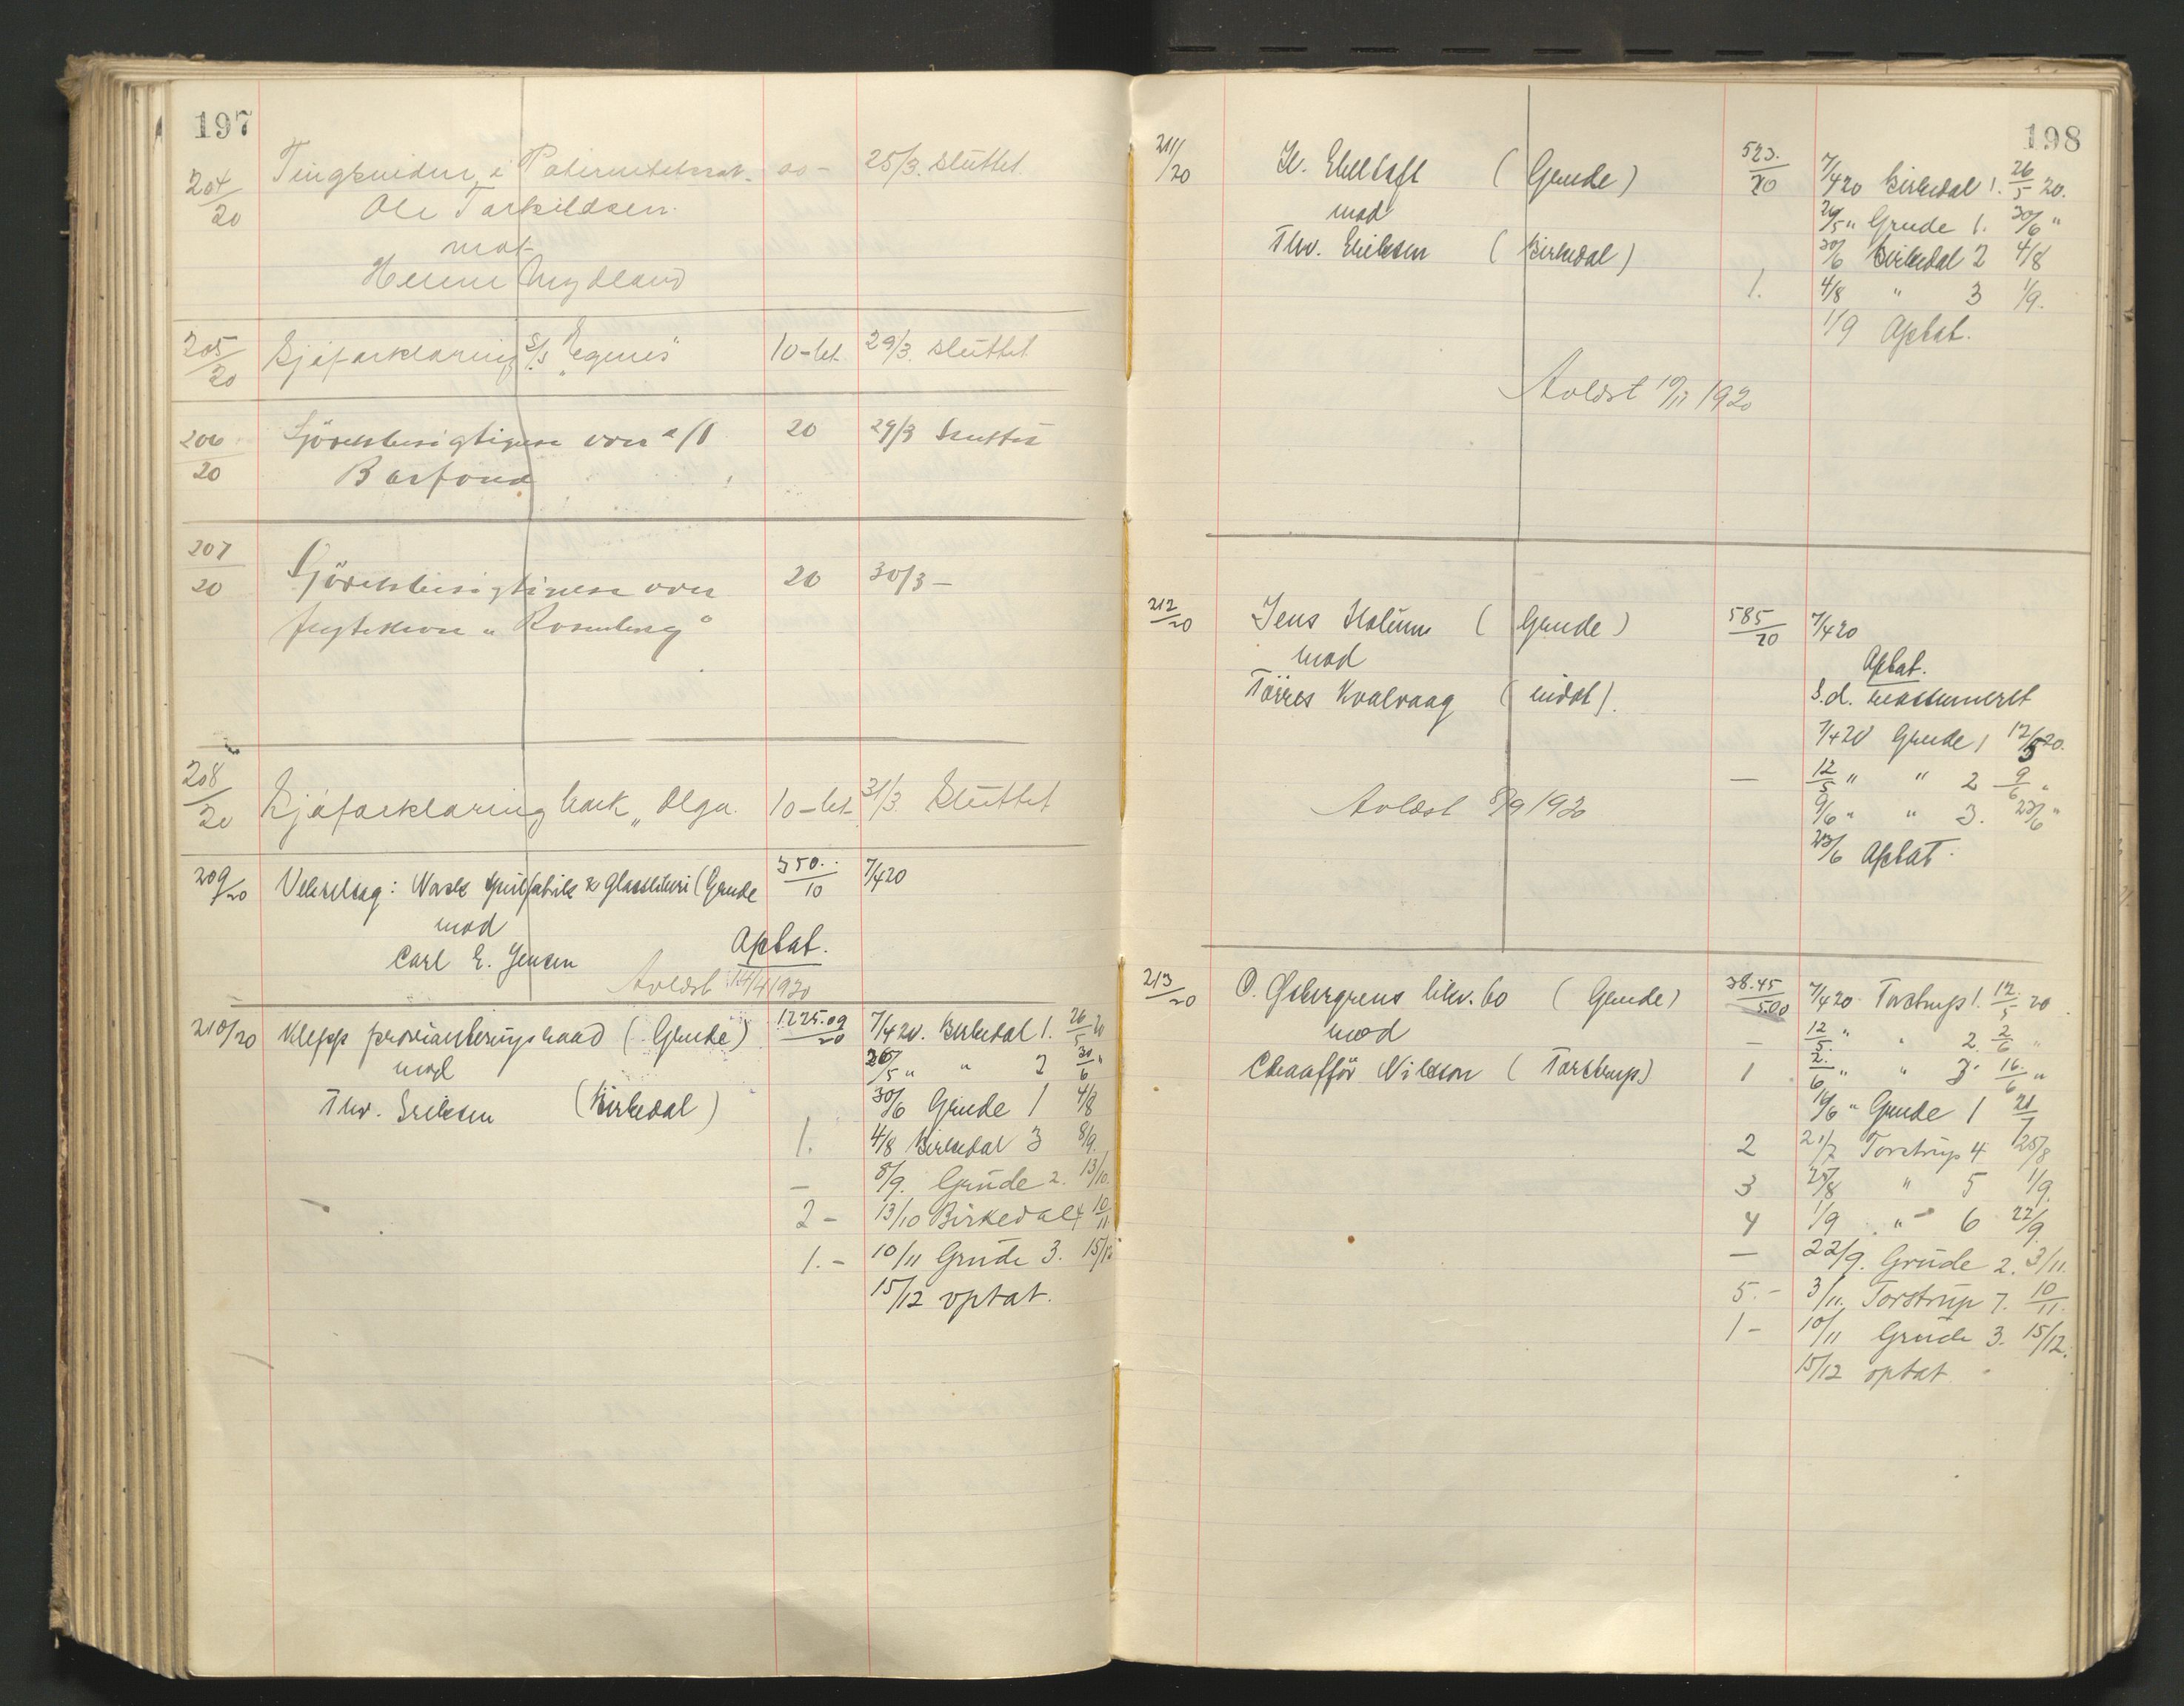 197
204/20 Tingsvidne i Paternitetssak. 20 - 25/3. sluttet.
Ole Torkildsen
mot
Helene Mydland
205/20 Sjøforklaring S/S "Egenes" 10 - bet. 29/3. sluttet
206/20 Sjörettsbesigtigelse over s/s 20 29/3 Sluttet
Barfond
207/20 Sjörettsbesigtigelse over 20 30/3 -
"Rosenberg"
208/20 Sjøforklaring bark "Olga. 10 - bet. 31/3. Sluttet
209/20 Vekselsag: Norsk speilfabrik & Glassliberi (Grude 350../10 7/4 20
mod
Carl E. Jensen Optat.
Avlæst 14/4 1920
210/20 Klepp provianteringsraad (Grude) 1225.09/20 7/4 20. Birkedal 1. 26/5 20
mod 26/5 " " 2 30/6 "
Thv. Eriksen (Birkedal) 30/6 Grude 1 4/8
1. 4/8 Birkedal 3 8/9.
— 8/9. Grude 2. 13/10.
2 - 13/10 Birkedal 4 10/11
1. - 10/11 Grude 3. 15/12
15/12 optat.
198
211/20 (Grude) 523./20 7/4 20 Birkedal 1. 26/5 20.
mod 26/5 " Grude 1. 30/6 "
Thv. Eriksen (Birkedal) 30/6 Birkedal 2 4/8
1. 4/8 " 3 1/9.
1/9 Optat.
Avlæst 10/11 1920
212/20 Jens Holum (Grude) 585/20 7/4 20
mod Optat.
Tørres Kvalvaag (uidat). S.d. reassumeret
7/4 20 Grude 1 12/5 20.
— 12/5 " " 2 9/6 "
Avlæst 8/9 1920 9/6 " " 3. 23/6 "
23/6 Optat.
213/20 O. Østergrens likv. bo (Grude) 38.45/500 7/4 20 Torstrup 1. 12./5 20
mod — 12/5. " " 2. 2/6 "
Chaufför Nilsson (Torstrup) 1 2./6 " " 3. 16./6 "
16/6 " Grude 1 21/7
2 21/7 Torstrup 4 25/8
3 25/8 " 5 1/9.
4 1/9 " 6 22/9.
— 22/9. Grude 2. 3/11.
5. - 3/11. Torstrup 7. 10/11.
1 - 10/11 Grude 3. 15/12.
15/12 optat.